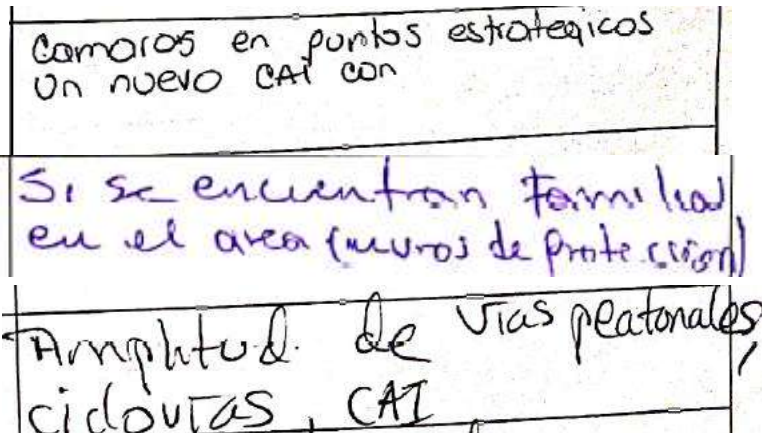 Camaras en puntos estrategicos
Un nuevo CAI con
Si se encuentran familias
en el area (muros de protección)
Amplitud de vias peatonales,
ciclovias, CAI